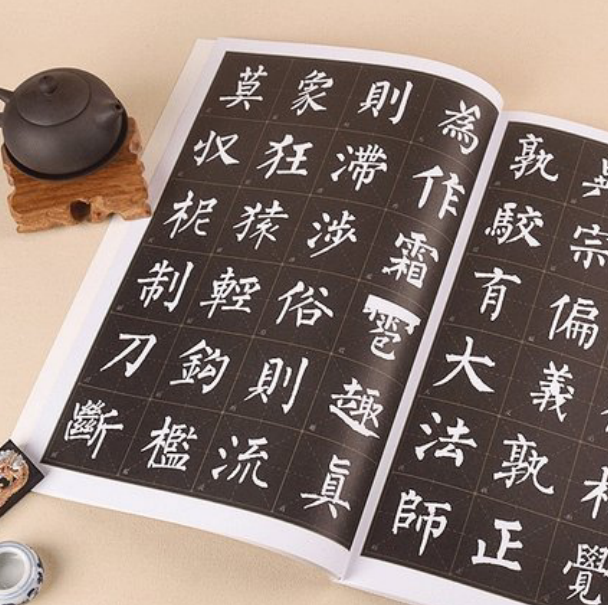 覺
異宗偏義孰正
孰駮有大法師
為作霜雹趣眞
則滯涉俗則流
象狂猿輕鈎檻
莫収柅制刀斷